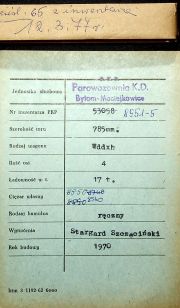 65 z inwentarza
12.3.77r.
P.K.P.
Jednostka służbowa Parowozownia K.D.
Bytom-Maciejkowice
Nr inwentarza PKP 53058 8551-5
Szerokość toru 785mm.
Rodzaj wagonu Wddxh
Ilość osi 4
Ładowność w t. 17 t.
Ciężar własny 8550 8740
8550 8540
Rodzaj hamulca ręczny
Wyposażenie Stargard Szczeciński
Rok budowy 1970